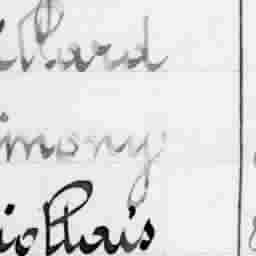 illard
imony
iollais